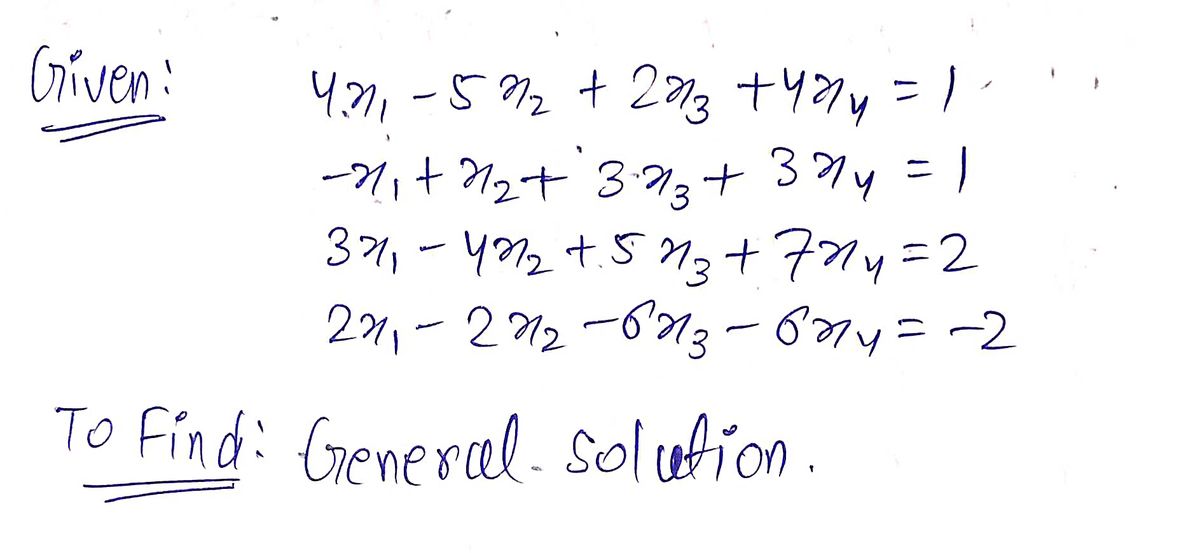 Given: 4x₁ - 5x₂ + 2x₃ + 4x₄ = 1
-x₁ + x₂ + 3x₃ + 3x₄ = 1
3x₁ - 4x₂ + 5x₃ + 7x₄ = 2
2x₁ - 2x₂ - 6x₃ - 6x₄ = -2
To Find: General solution.